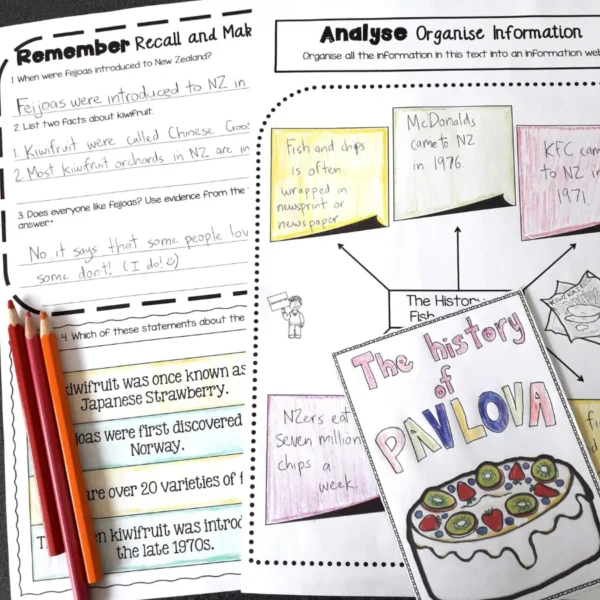 Remember Recall and Mak
1. When were feijoas introduced to New Zealand?
Feijoas were introduced to NZ in
2. List two facts about kiwifruit.
1. Kiwifruit were called Chinese Goos
2. Most kiwifruit orchards in NZ are in
3. Does everyone like feijoas? Use evidence from the
answer.
No, it says that some people lov
some dont! (I do!)
4. Which of these statements about the
iwifruit was once known as
Japanese Strawberry.
joas were first discovered
Norway.
are over 20 varieties of f
n kiwifruit was introd
the late 1970s.
Analyse Organise Information
Organise all the information in this text into an information web
Fish and chips
is often
wrapped in
newsprint or
newspaper
McDonalds
came to NZ
in 1976.
KFC cam
to NZ in
1971.
The History
Fish
NZers eat
Seven million
chips a
week.
fis
The history
of
PAVLOVA